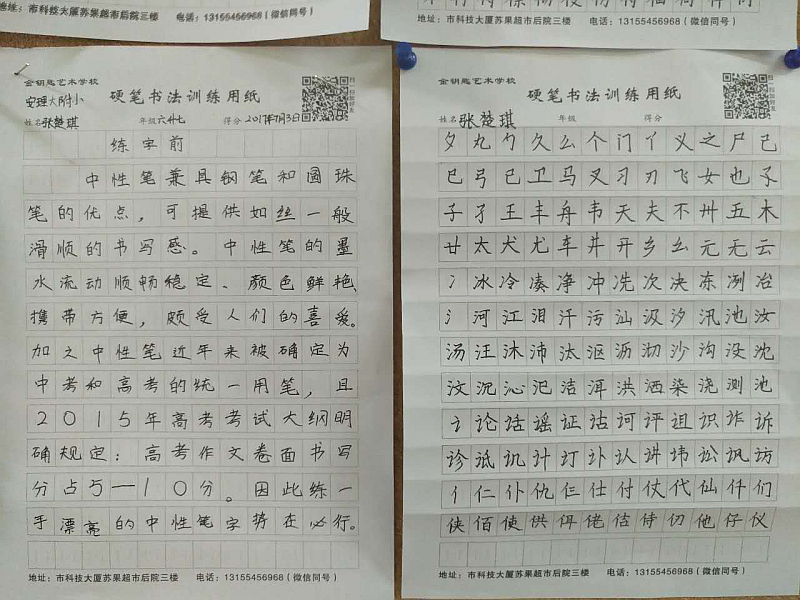 地址：市科技大厦苏果超市后院三楼 电话：13155456968（微信同号）
地址：市科技大厦苏果超市后院三楼 电话：13155456968（微信同号）
金钥匙艺术学校
安理大附小
硬笔书法训练用纸
姓名 张楚琪 年级 六升七 得分 2017年7月3日
练字前
中性笔兼具钢笔和圆珠
笔的优点，可提供如丝一般
滑顺的书写感。中性笔的墨
水流动顺畅稳定、颜色鲜艳、
携带方便，颇受人们的喜爱。
加之中性笔近年来被确定为
中考和高考的统一用笔，且
2015年高考考试大纲明
确规定：高考作文卷面书写
分占5—10分。因此练一
手漂亮的中性笔字势在必行。
地址：市科技大厦苏果超市后院三楼 电话：13155456968（微信同号）
金钥匙艺术学校
硬笔书法训练用纸
姓名 张楚琪 年级 得分
夕丸勺久么个门丫义之尸己
巳弓已卫马叉习刃飞女也孑
子孑王丰舟韦天夫不卅五木
廿太犬尤车井开乡幺元无云
冫冰冷凑净冲冼次决冻冽冶
氵河江泪汗污汕汲汐汛池汝
汤汪沐沛汰沤沥沏沙沟没沈
汶沉沁汜洁洱洪洒染浇测池
讠论话谣证诂诃评诅识诈诉
诊诋讥计订讣认讲讳讼讽访
亻仁仆仇仨仕付仗代仙仟们
侠佰使供佴佬估侍仞他仔仪
地址：市科技大厦苏果超市后院三楼 电话：13155456968（微信同号）